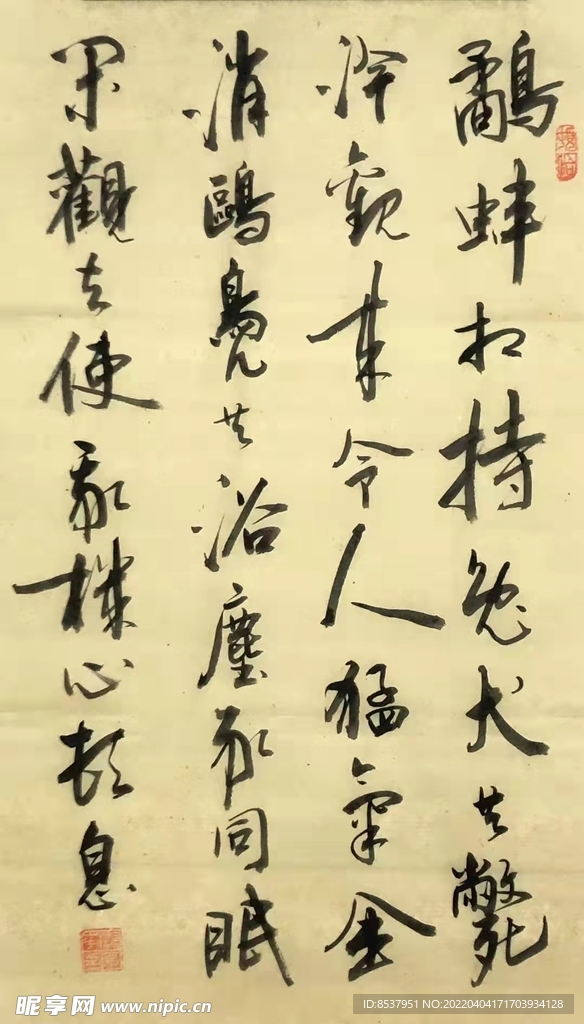 鷸蚌相持兔犬共斃
冷觀来令人猛氣全
消鷗鳧共浴塵豕同眠
閑觀去使我機心頓息
昵享网 www.nipic.cn
ID:8537951 NO:20220404171703934128